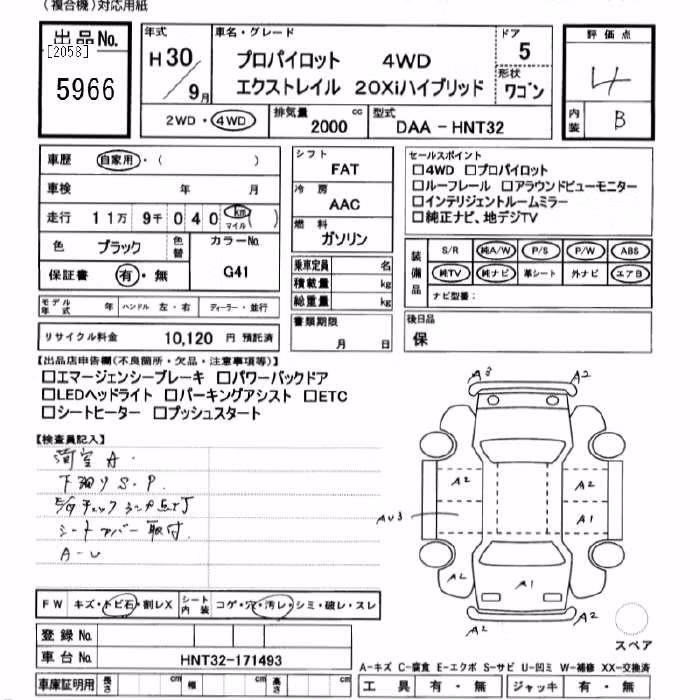 (複合機)対応用紙
出品No.
[2058]
5966
年式
H30/9月
車名・グレード
プロパイロット 4WD
エクストレイル 20Xiハイブリッド
ドア
5
形状
ワゴン
評価点
4
内装
B
2WD・4WD
排気量
2000 cc
型式
DAA-HNT32
車歴 自家用・( )
車検 年 月
走行 11万 9千 040 km マイル( )
色 ブラック 色替
カラーNo.
G41
保証書 有・無
モデル年式 年 ハンドル 左・右 ディーラー・並行
リサイクル料金 10,120 円 預託済
シフト
FAT
冷房
AAC
燃料
ガソリン
乗車定員 名
積載量 kg
総重量 kg
書類期限
月 日
セールスポイント
□4WD □プロパイロット
□ルーフレール □アラウンドビューモニター
□インテリジェントルームミラー
□純正ナビ、地デジTV
装備品
S/R 純A/W P/S P/W ABS
純TV 純ナビ 革シート 外ナビ エアB
ナビ型番:
後日品
保
【出品店申告欄(不良箇所・欠品・注意事項等)】
□エマージェンシーブレーキ □パワーバックドア
□LEDヘッドライト □パーキングアシスト □ETC
□シートヒーター □プッシュスタート
【検査員記入】
荷室A.
下廻りS.P.
E/Gチェックランプ点灯
シートカバー取付.
A-U
FW キズ・トビ石・割レX シート内装 コゲ・穴・汚レ・シミ・破レ・スレ
登録No.
車台No. HNT32-171493
車庫証明用 長さ cm 幅 cm 高さ cm
A3
A2
A2
A2
AU3
A1
A2
A1
A2
A2
スペア
A-キズ C-腐食 E-エクボ S-サビ U-凹ミ W-補修 XX-交換済
工具 有・無 ジャッキ 有・無